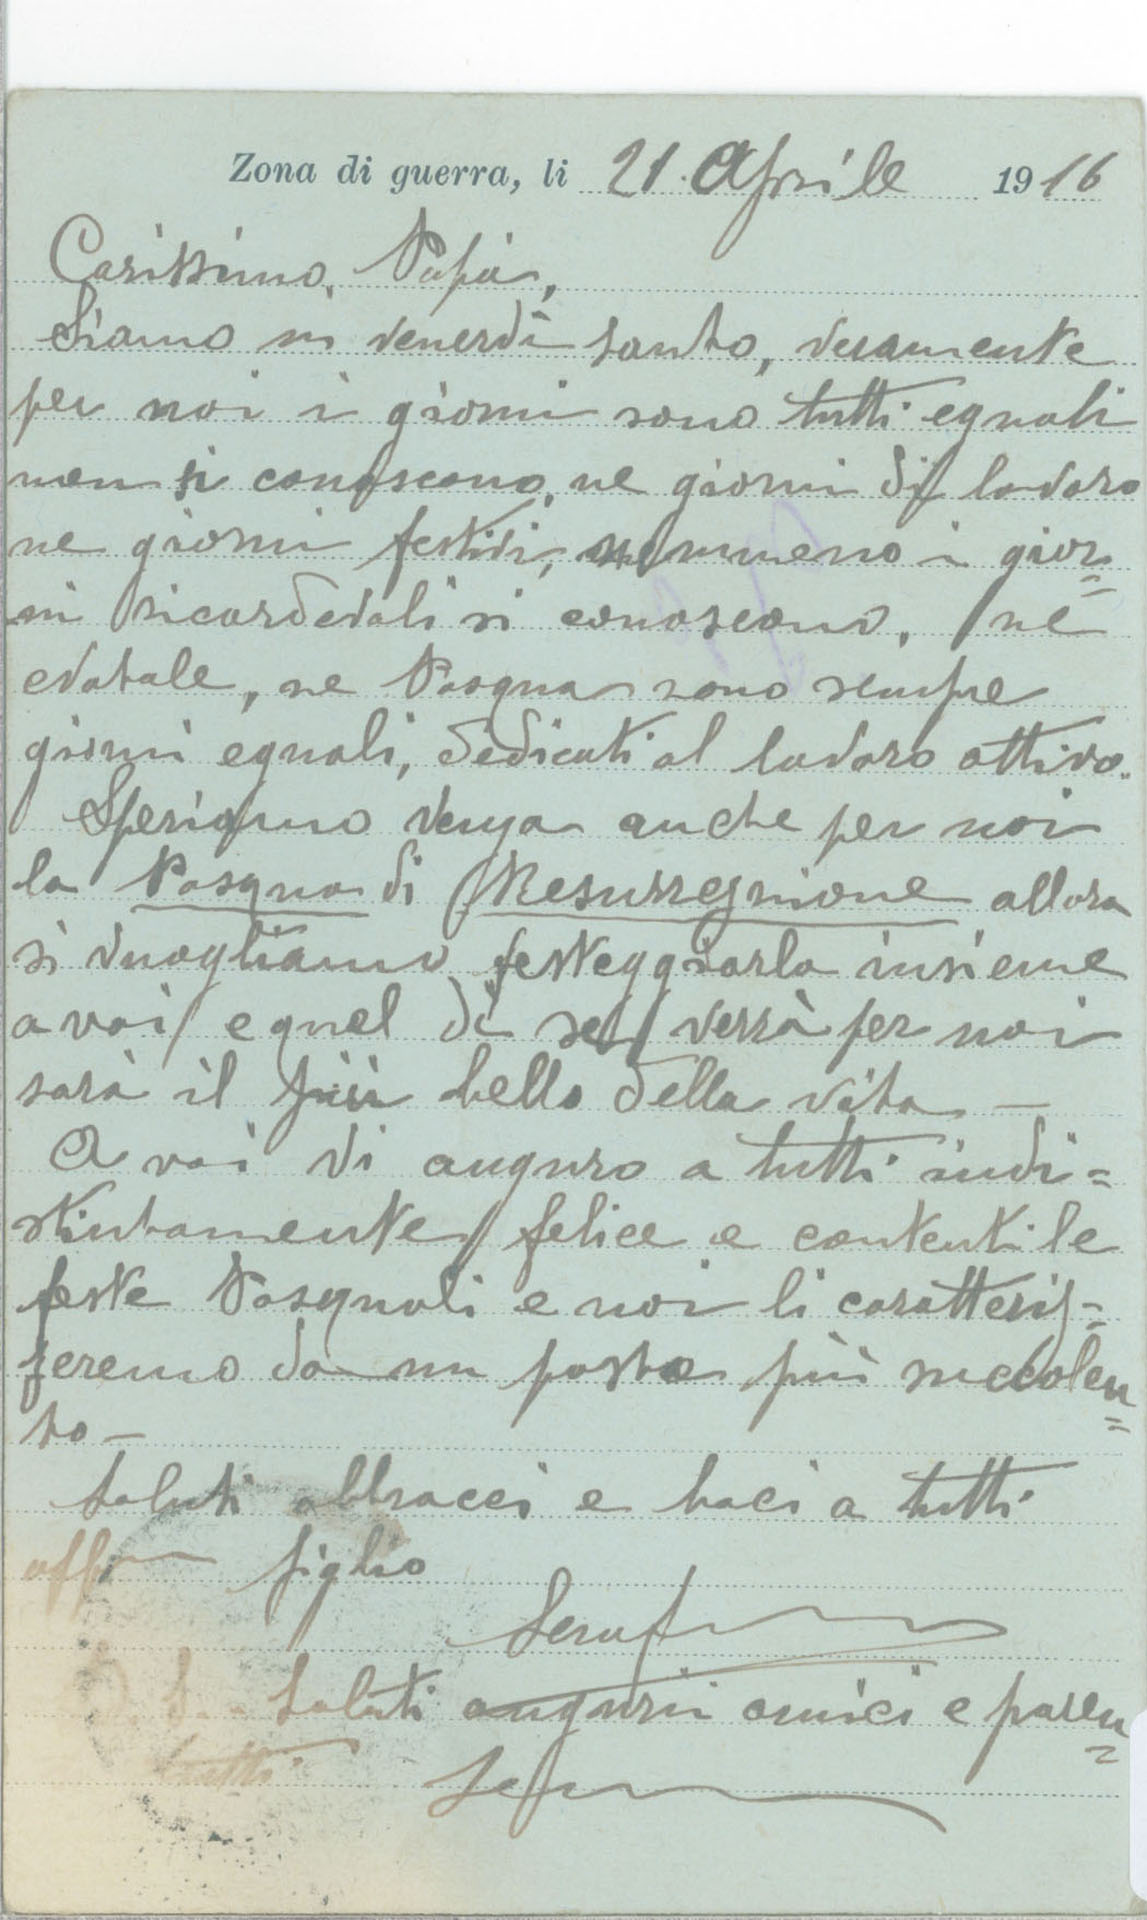 Zona di guerra, li 21. Aprile 1916
Carissimo Papà,
Siamo in venerdì santo, veramente
per noi i giorni sono tutti eguali
non si conoscono, ne giorni di lavoro
ne giorni festivi, nemmeno i gior=
ni ricordevoli si conoscono, ne
Natale, ne Pasqua sono sempre
giorni eguali, dedicati al lavoro attivo.
Speriamo venga anche per noi
la Pasqua di Resurregnione allora
si vuogliamo festeggiarla insieme
a voi e quel dì se verrà per noi
sarà il più bello della vita —
A voi vi auguro a tutti indi=
stintamente felice e contenti le
feste Pasquali e noi li caratteris=
feremo da un pasto più succolen=
to —
Saluti abbracci e baci a tutti
aff figlio
Seraf
Saluti auguri amici e paren=
tutti